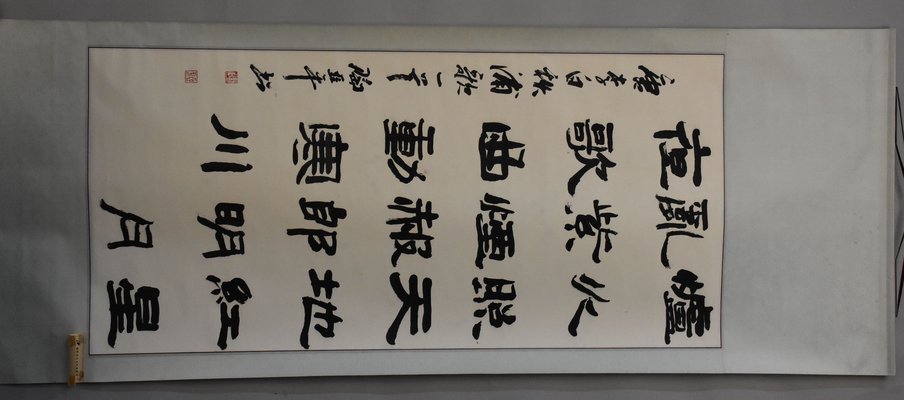 爐火照天地紅星
亂紫煙赧郎明月
夜歌曲動寒川
唐李白秋浦歌一首